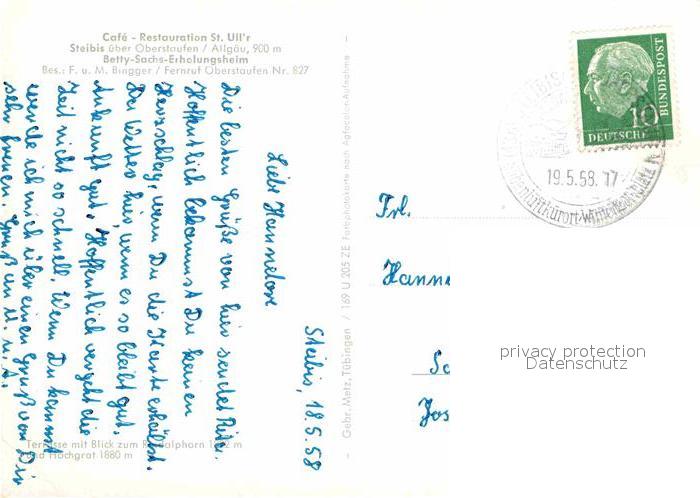 Café - Restauration St. Ull'r
Steibis über Oberstaufen / Allgäu, 900 m
Betty-Sachs-Erholungsheim
Bes.: F. u. M. Bingger / Fernruf Oberstaufen Nr. 827
Steibis, 18.5.58
Liebe Hannelore
Die besten Grüße von hier sendet Rita.
Hoffentlich bekommst Du keinen
Herzschlag, wenn Du die Karte erhälst.
Das Wetter hier, wenn es so bleibt gut.
Ankunft gut. Hoffentlich vergeht die
Zeit nicht so schnell. Wenn Du kannst
werde ich mich über einen Gruß von Dir
sehr freuen. Gruß an U. u. A.
Terrasse mit Blick zum Rindalphorn m
und Hochgrat 1880 m
Gebr. Metz, Tübingen / 169 U 205 ZE Farbphotokarte nach Agfacolor-Aufnahme
DEUTSCHE BUNDESPOST
10
19.5.58. 17
STEIBIS
Höhenluftkurort-Wintersportplatz
Frl.
Hanne
Sc
Jos
privacy protection
Datenschutz